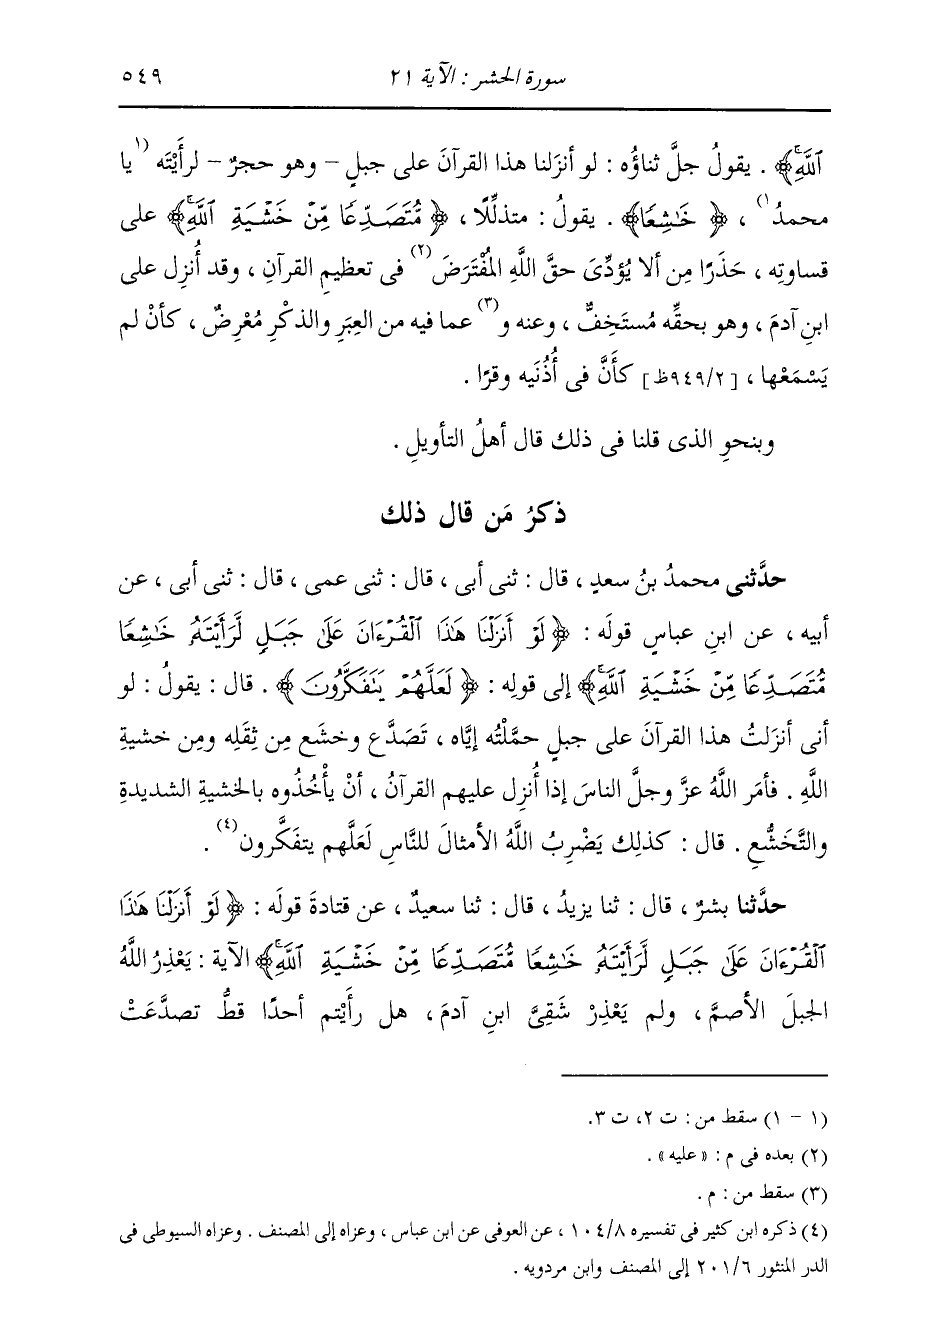 سورة الحشر : الآية ٢١ ٥٤٩
ٱللَّهِۚ﴾ . يقولُ جلَّ ثناؤُه : لو أنزَلنا هذا القرآنَ على جبلٍ – وهو حجرٌ – لرأَيْتَه (١) يا
محمدُ (١) ، ﴿ خَٰشِعًا﴾ . يقولُ : متذلِّلًا ، ﴿ مُّتَصَدِّعًا مِّنْ خَشْيَةِ ٱللَّهِۚ﴾ على
قساوتِه ، حَذَرًا مِن ألا يُؤدِّىَ حقَّ اللَّهِ المُفْتَرَضَ (٢) فى تعظيمِ القرآنِ ، وقد أُنزِل على
ابنِ آدمَ ، وهو بحقِّه مُستَخِفٌّ ، وعنه و (٣) عما فيه من العِبَرِ والذكْرِ مُعْرِضٌ ، كأنْ لم
يَسْمَعْها ، [ ٩٤٩/٢ظ ] كأَنَّ فى أُذُنَيه وقرًا .
وبنحوِ الذى قلنا فى ذلك قال أهلُ التأويلِ .
ذكرُ مَن قال ذلك
حدَّثنى محمدُ بنُ سعدٍ ، قال : ثنى أبى ، قال : ثنى عمى ، قال : ثنى أبى ، عن
أبيه ، عن ابنِ عباسٍ قولَه : ﴿ لَوْ أَنزَلْنَا هَٰذَا ٱلْقُرْءَانَ عَلَىٰ جَبَلٍ لَّرَأَيْتَهُۥ خَٰشِعًا
مُّتَصَدِّعًا مِّنْ خَشْيَةِ ٱللَّهِۚ﴾ إلى قولِه : ﴿ لَعَلَّهُمْ يَتَفَكَّرُونَ ﴾ . قال : يقولُ : لو
أنى أنزَلتُ هذا القرآنَ على جبلٍ حمَّلْتُه إيَّاه ، تَصَدَّع وخشَع مِن ثِقَلِه ومِن خشيةِ
اللَّهِ . فأمَر اللَّهُ عزَّ وجلَّ الناسَ إذا أُنزِل عليهم القرآنُ ، أنْ يأْخُذُوه بالخشيةِ الشديدةِ
والتَّخَشُّعِ . قال : كذلِك يَضْرِبُ اللَّهُ الأمثالَ للنَّاسِ لَعَلَّهم يتفكَّرون (٤) .
حدَّثنا بشرٌ ، قال : ثنا يزيدُ ، قال : ثنا سعيدٌ ، عن قتادةَ قولَه : ﴿ لَوْ أَنزَلْنَا هَٰذَا
ٱلْقُرْءَانَ عَلَىٰ جَبَلٍ لَّرَأَيْتَهُۥ خَٰشِعًا مُّتَصَدِّعًا مِّنْ خَشْيَةِ ٱللَّهِۚ﴾ الآية : يَعْذِرُ اللَّهُ
الجبلَ الأصمَّ ، ولم يَعْذِرْ شَقِىَّ ابنِ آدمَ ، هل رأَيْتم أحدًا قطُّ تصدَّعَتْ
(١ – ١) سقط من : ت ٢، ت ٣.
(٢) بعده فى م : « عليه » .
(٣) سقط من : م .
(٤) ذكره ابن كثير فى تفسيره ١٠٤/٨ ، عن العوفى عن ابن عباس ، وعزاه إلى المصنف . وعزاه السيوطى فى
الدر المنثور ٢٠١/٦ إلى المصنف وابن مردويه .